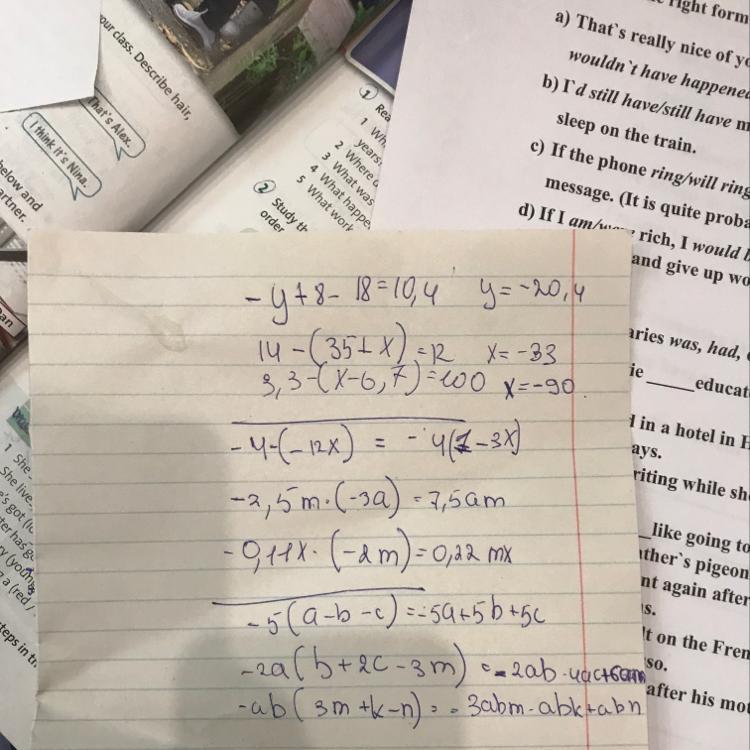 our class. Describe hair,
That's Alex.
I think it's Nina.
below and
artner.
1 Rea
1 Wh
years
2 Where
3 What was
4 What happe
5 What work
2 Study th
order
right form
a) That`s really nice of yo
wouldn`t have happened
b) I`d still have/still have m
sleep on the train.
c) If the phone ring/will ring
message. (It is quite proba
d) If I am/were rich, I would b
and give up wo
aries was, had,
ie _____ educat
d in a hotel in H
ays.
riting while sh
_like going to
ther`s pigeon
nt again after
s.
t on the Fren
so.
after his mot
1 She
She live
's got (li
ter has g
y (young
a (red /
steps in th
-y+8-18=10,4 y=-20,4
14-(35+x)=12 x=-33
3,3-(x-6,7)=100 x=-90
-4-(-12x) = -4(1-3x)
-2,5m·(-3a)=7,5am
-0,11x·(-2m)=0,22mx
-5(a-b-c)=-5a+5b+5c
-2a(b+2c-3m)=-2ab-4ac+6am
-ab(3m+k-n)=-3abm-abk+abn